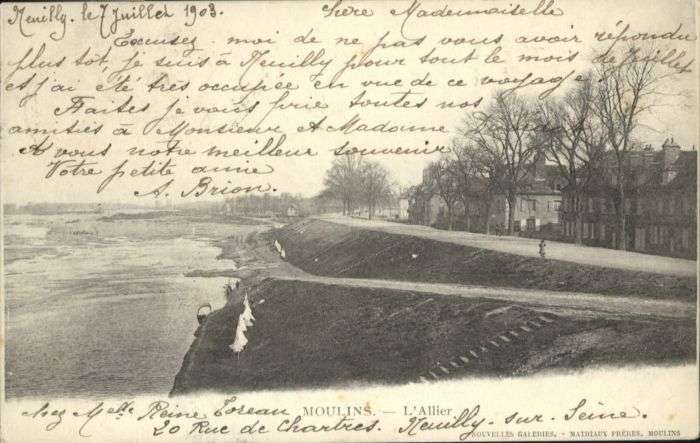 Neuilly. le 7 Juillet 1903.
Chère Mademoiselle
Excusez moi de ne pas vous avoir répondu
plus tôt, je suis à Neuilly pour tout le mois de Juillet
et j'ai été très occupée en vue de ce voyage
Faites je vous prie toutes nos
amitiés à Monsieur et Madame
A vous notre meilleur souvenir
Votre petite amie
A. Brion.
MOULINS. — L'Allier
chez Melle Reine Toreau
20 Rue de Chartres. Neuilly-sur-Seine.
NOUVELLES GALERIES. - MATHIAUX FRÈRES, MOULINS